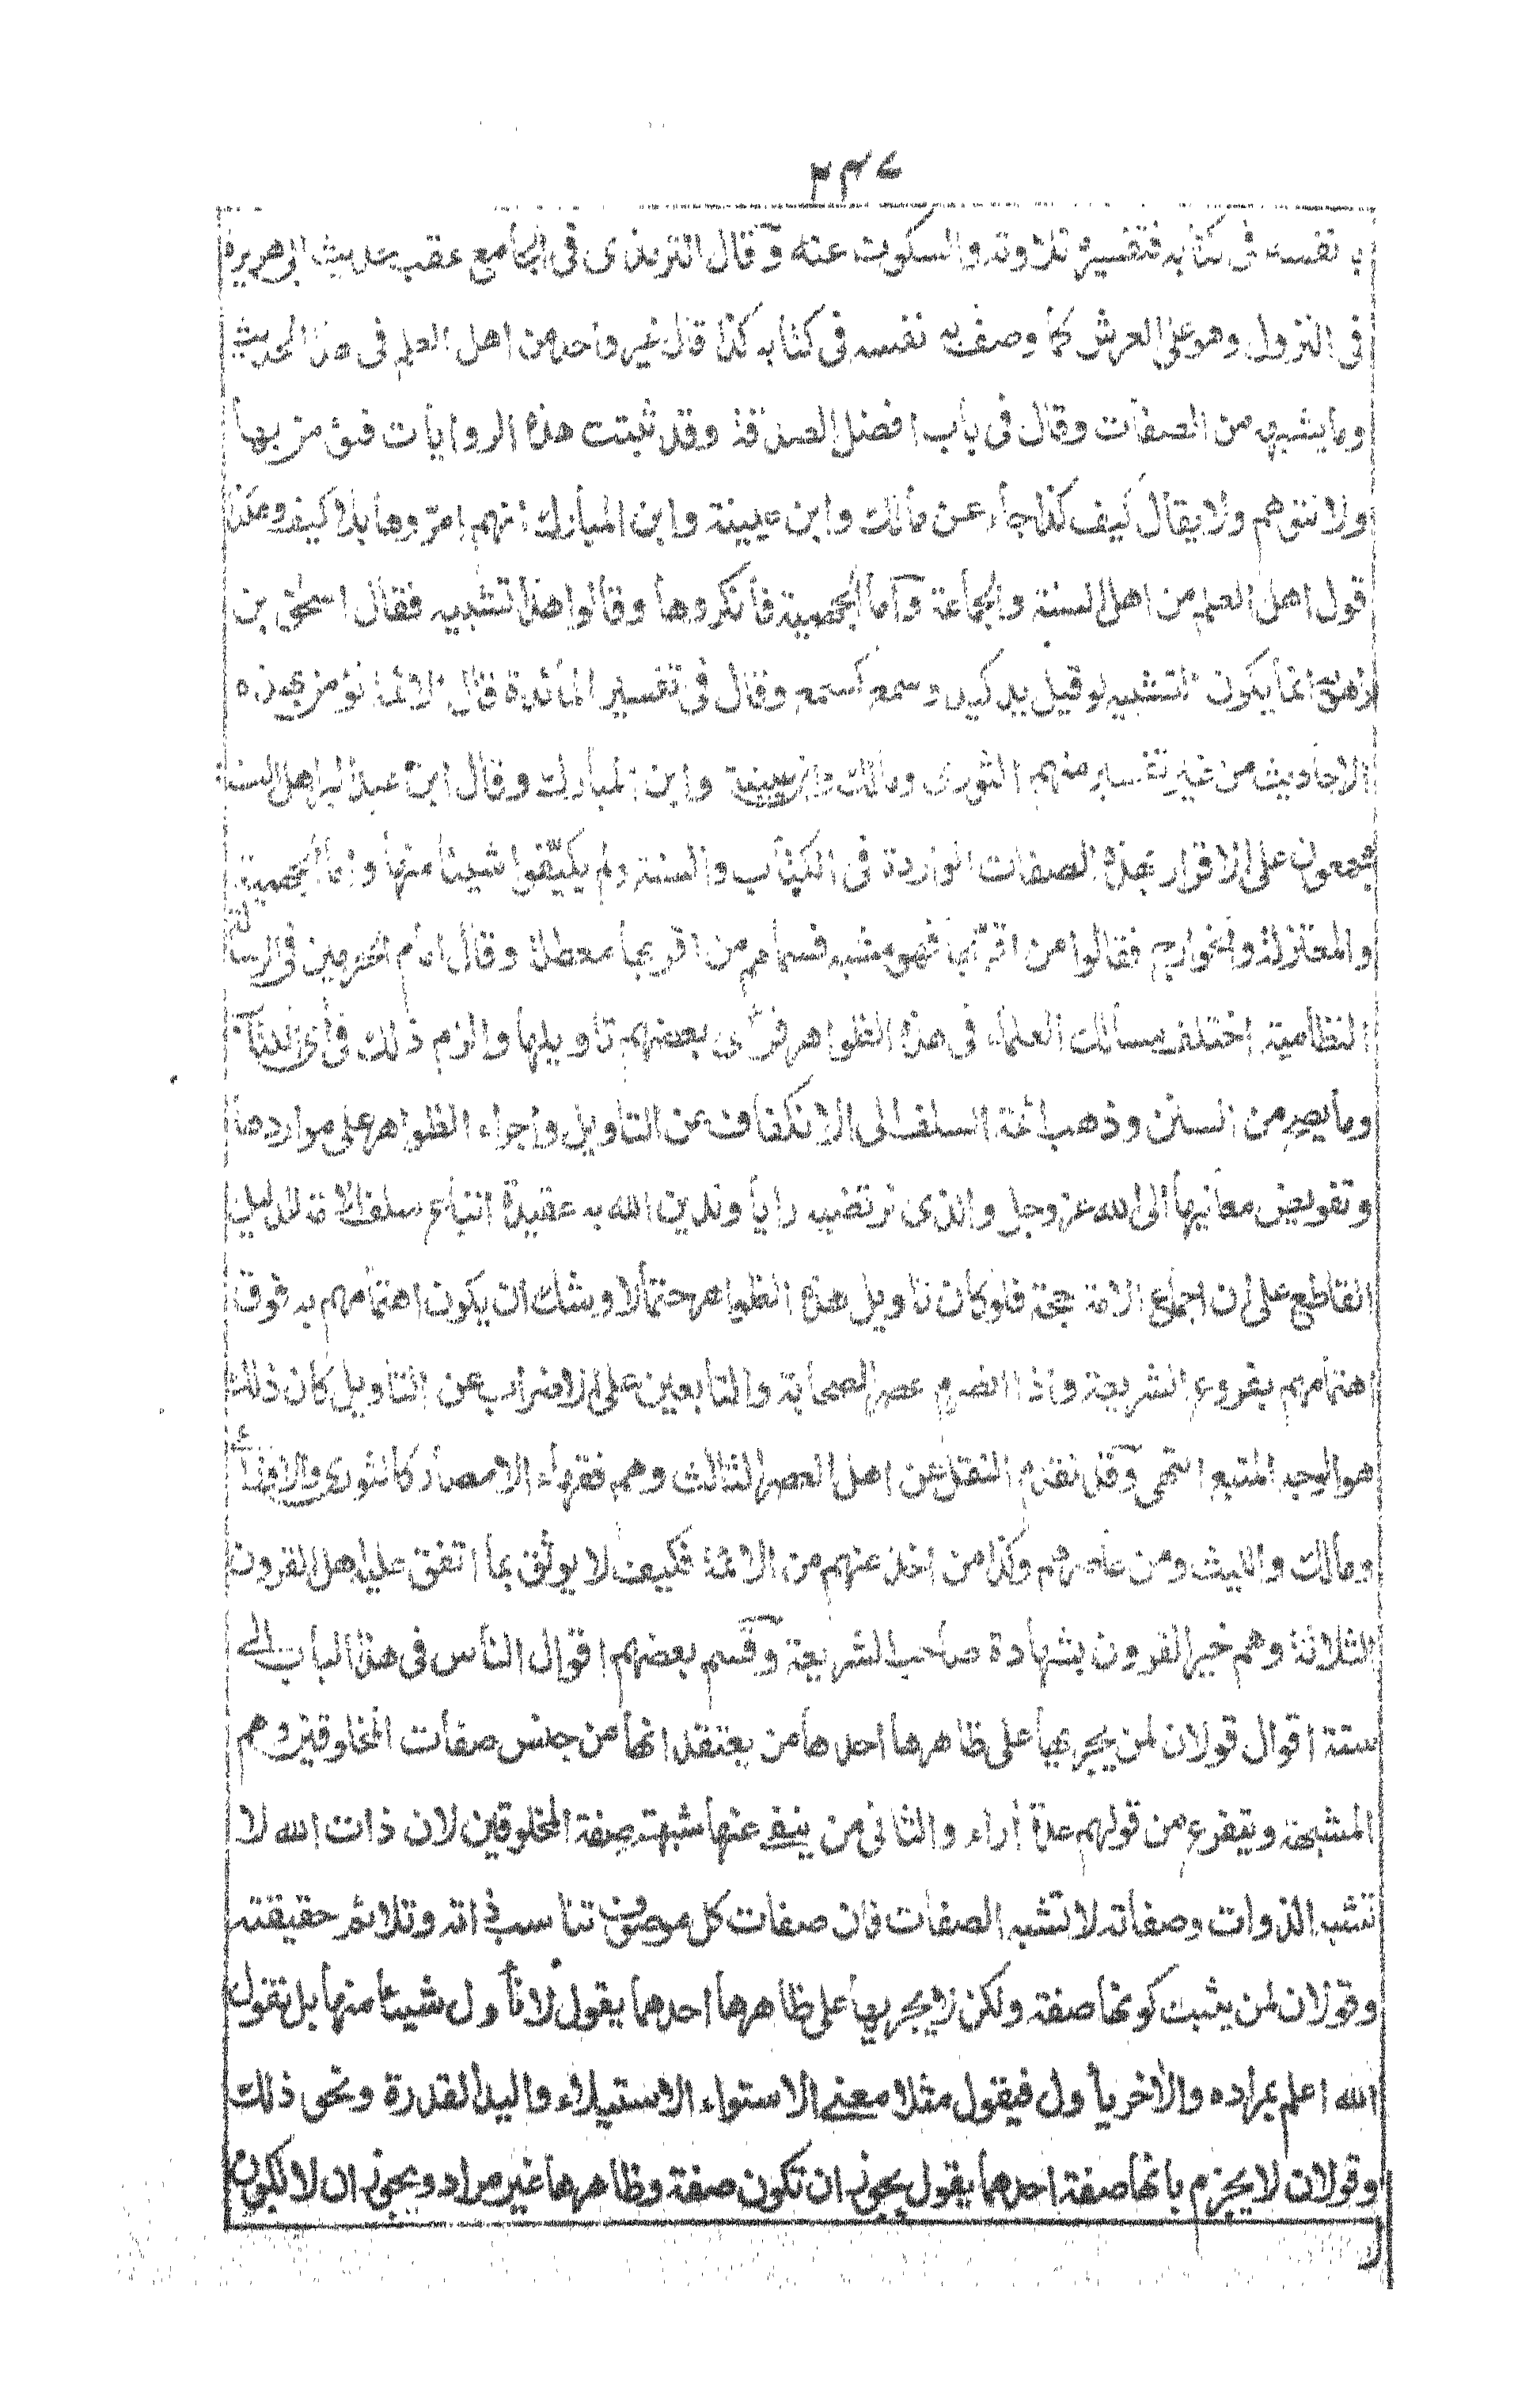 ٢٣٧
به نفسه فى كتابه فتفسيره تلاوته والسكوت عنه وقال الترمذى فى الجامع عقب حديث ابى هريرة
فى النزول وهو على العرش كما وصف به نفسه فى كتابه كذا قال غير واحد من اهل العلم فى هذا الحديث
وما يشبهه من الصفات وقال فى باب افضل الصدقة وقد ثبتت هذه الروايات فنؤمن بها
ولا نتوهم ولا يقال كيف كذا جاء عن مالك وابن عيينة وابن المبارك انهم امرّوها بلا كيف وهكذا
قول اهل العلم من اهل السنة والجماعة وأما الجهمية فأنكروها وقالوا هذا تشبيه فقال اسحٰق بن
راهويه انما يكون التشبيه لو قيل يد كيد وسمع كسمع وقال فى تفسير المائدة قال الائمة نؤمن بهذه
الاحاديث من غير تفسير منهم الثورى ومالك وابن عيينة وابن المبارك وقال ابن عبد البر اهل السنة
مجمعون على الاقرار بهذه الصفات الواردة فى الكتاب والسنة ولم يكيّفوا شيئا منها واما الجهمية
والمعتزلة والخوارج فقالوا من اقرّ بها فهو مشبه فسماهم من اقر بها معطلة وقال امام الحرمين فى الرسالة
النظامية اختلف مسالك العلماء فى هذه الظواهر فرأى بعضهم تأويلها والزم ذلك فى أى الكتاب
وما يصح من السنن وذهب ائمة السلف الى الانكفاف عن التاويل واجراء الظواهر على مواردها
وتفويض معانيها الى الله عز وجل والذى نرتضيه رايا وندين الله به عقيدة اتباع سلف الامة للدليل
القاطع على ان اجماع الامة حجة فلو كان تاويل هذه الظواهر حتما لاوشك ان يكون اهتمامهم به فوق
اهتمامهم بفروع الشريعة واذا انصرم عصر الصحابة والتابعين على الاضراب عن التاويل كان ذلك
هو الوجه المتبع انتهى وقد تقدم النقل عن اهل العصر الثالث وهم فقهاء الامصار كالثورى والاوزاعى
ومالك والليث ومن عاصرهم وكذا من اخذ عنهم من الائمة فكيف لا يوثق بما اتفق عليه اهل القرون
الثلاثة وهم خير القرون بشهادة صاحب الشريعة وقسم بعضهم اقوال الناس فى هذا الباب الى
ستة اقوال قولان لمن يجريها على ظاهرها احدها من يعتقد انها من جنس صفات المخلوقين وهم
المشبهة ويتفرع من قولهم عدة أراء والثانى من ينفى عنها شبهة صفة المخلوقين لان ذات الله لا
تشبه الذوات وصفاته لا تشبه الصفات فان صفات كل موصوف تناسب ذاته وتلائم حقيقته
وقولان لمن يثبت كونها صفة ولكن لا يجريها على ظاهرها احدهما يقول لا نأول شيئا منها بل نقول
الله اعلم بمراده والاخر يأول فيقول مثلا معنى الاستواء الاستيلاء واليد القدرة ونحو ذلك
وقولان لا يجزم بانها صفة احدهما يقول يجوز ان تكون صفة وظاهرها غير مراد ويجوز ان لا تكون